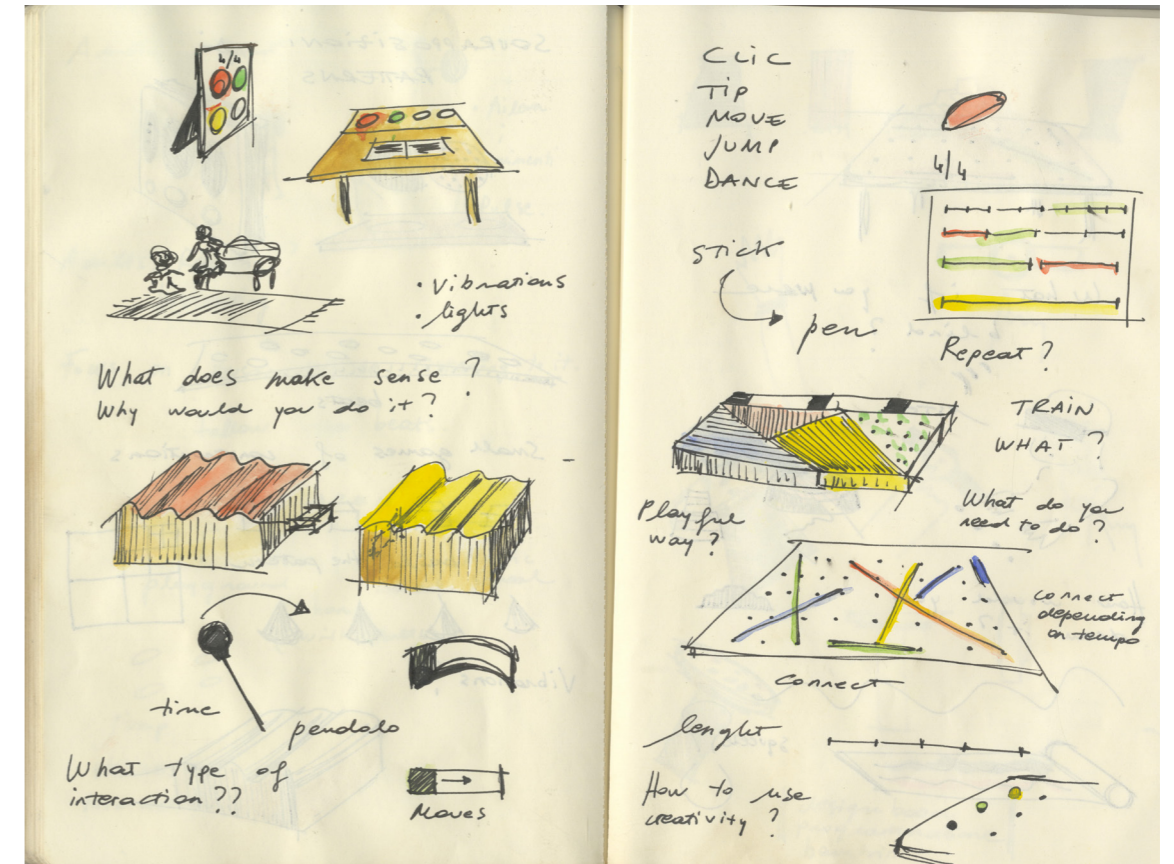 4/4
• vibrations
• lights
What does make sense?
Why would you do it?
time
pendolo
What type of
interaction??
Moves
CLIC
TIP
MOVE
JUMP
DANCE
4/4
stick
pen
Repeat?
TRAIN
WHAT?
Playful
way?
What do you
need to do?
connect
depending
on tempo
connect
lenght
How to use
creativity?